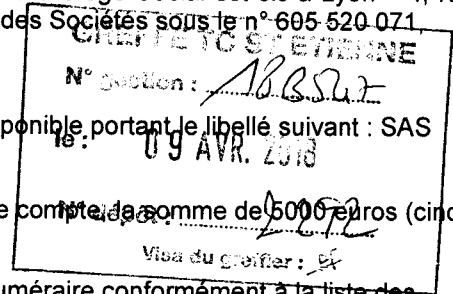 des Sociétés sous le n° 605 520 071,
GREFFE TC ST ETIENNE
N° gestion : 18B547
ponible portant le libellé suivant : SAS
le : 09 AVR. 2018
e compte, la somme de 5000 euros (cinq
N° dépôt :
Visa du greffier :
uméraire conformément à la liste des